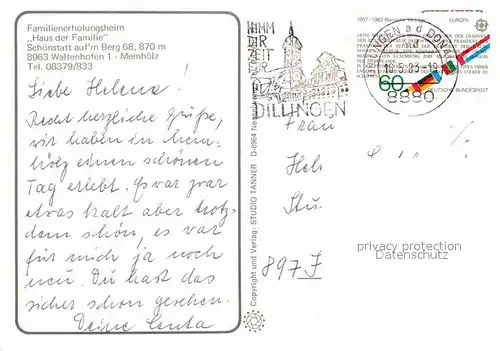 Familienerholungsheim
„Haus der Familie"
Schönstatt auf'm Berg 68, 870 m
8963 Waltenhofen 1 - Memhölz
Tel. 08379/833
Liebe Helena!
Recht herzliche Grüße,
wir haben in Mem-
hölz einen schönen
Tag erlebt. Es war zwar
etwas kalt aber trotz-
dem schön, es war
für mich ja noch
neu. Du hast das
sicher schon gesehen.
Deine Centa
Copyright und Verlag: STUDIO TANNER
NIMM
DIR
ZEIT
FÜR
DILLINGEN
DILLINGEN a d DONAU
8880
1957-1982
EUROPA
60
DEUTSCHE BUNDESPOST
Frau
Hel
897
privacy protection
Datenschutz